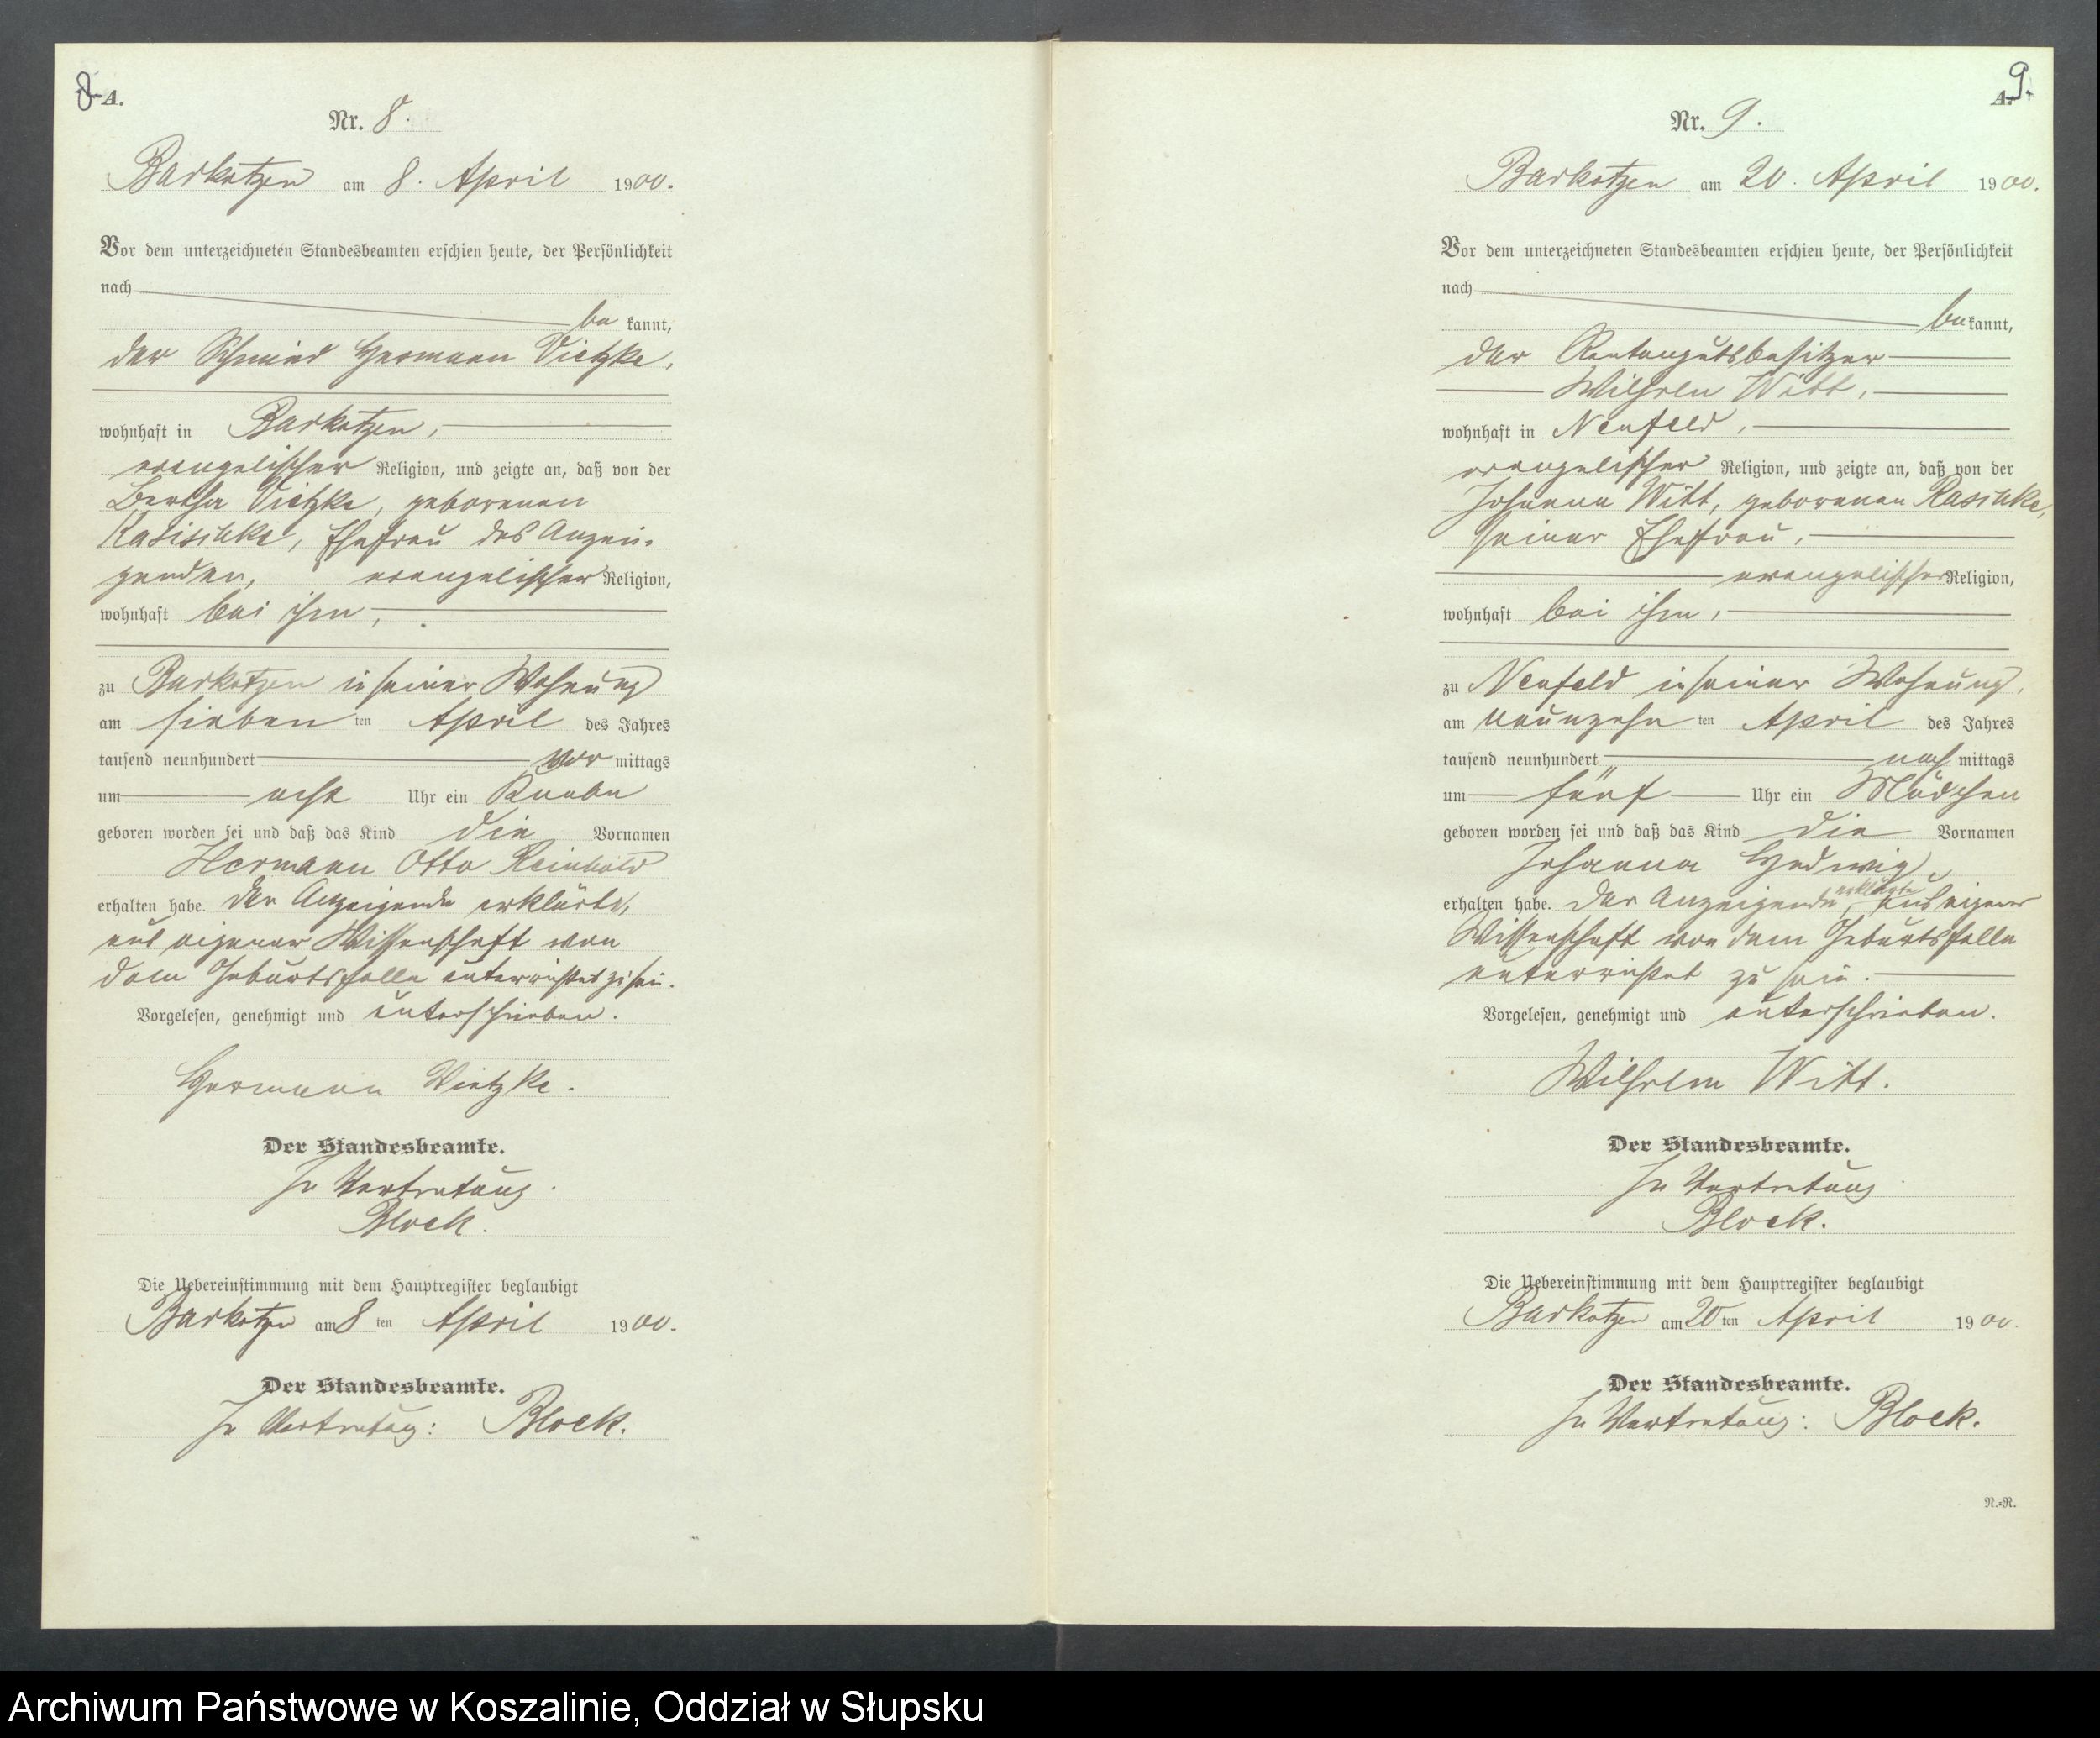 8
A.
Nr. 8.
Barkotzen am 8. April 1900.
Vor dem unterzeichneten Standesbeamten erschien heute, der Persönlichkeit
nach
be kannt,
der Schmied Hermann Vietzke,
wohnhaft in Barkotzen,
evangelischer Religion, und zeigte an, daß von der
Bertha Vietzke, geborenen
Rasischke, Ehefrau des Anzei-
genden, evangelischer Religion,
wohnhaft bei ihm,
zu Barkotzen in seiner Wohnung
am sieben ten April des Jahres
tausend neunhundert vor mittags
um acht Uhr ein Knabe
geboren worden sei und daß das Kind die Vornamen
Hermann Otto Reinhold
erhalten habe. Der Anzeigende erklärte,
aus eigener Wissenschaft von
dem Geburtsfalle unterrichtet zu sein.
Vorgelesen, genehmigt und unterschrieben.
Hermann Vietzke.
Der Standesbeamte.
In Vertretung.
Block.
Die Uebereinstimmung mit dem Hauptregister beglaubigt
Barkotzen am 8 ten April 1900.
Der Standesbeamte.
In Vertretung: Block.
9.
A.
Nr. 9.
Barkotzen am 20. April 1900.
Vor dem unterzeichneten Standesbeamten erschien heute, der Persönlichkeit
nach
be kannt,
der Rentengutsbesitzer
Wilhelm Witt,
wohnhaft in Neufeld,
evangelischer Religion, und zeigte an, daß von der
Johanna Witt, geborenen
seiner Ehefrau,
evangelischer Religion,
wohnhaft bei ihm,
zu Neufeld in seiner Wohnung,
am neunzehn ten April des Jahres
tausend neunhundert nach mittags
um fünf Uhr ein Mädchen
geboren worden sei und daß das Kind die Vornamen
Johanna Hedwig
erhalten habe. Der Anzeigende erklärte, aus eigener
Wissenschaft von dem Geburtsfalle
unterrichtet zu sein.
Vorgelesen, genehmigt und unterschrieben.
Wilhelm Witt.
Der Standesbeamte.
In Vertretung
Block.
Die Uebereinstimmung mit dem Hauptregister beglaubigt
Barkotzen am 20 ten April 1900.
Der Standesbeamte.
In Vertretung: Block.
N.=N.
Archiwum Państwowe w Koszalinie, Oddział w Słupsku